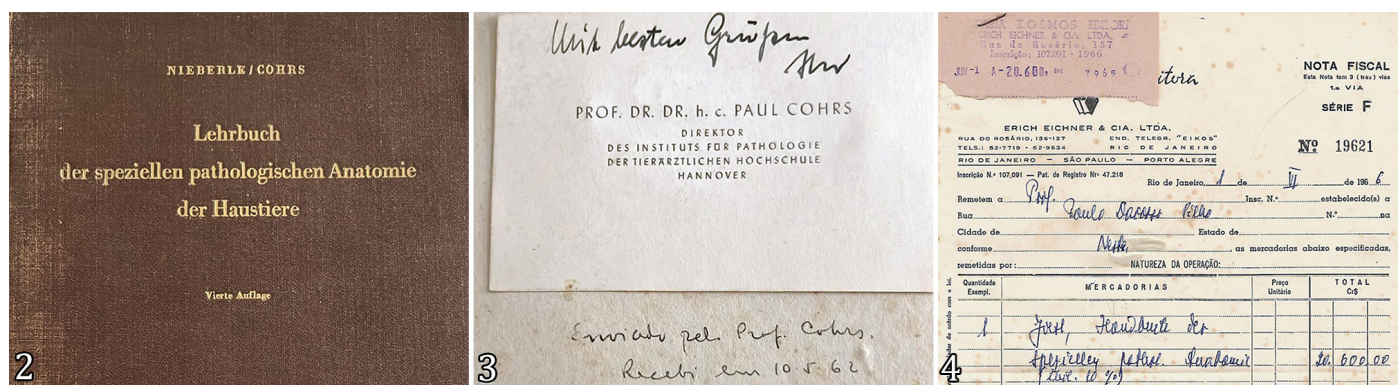 NIEBERLE/COHRS
Lehrbuch
der speziellen pathologischen Anatomie
der Haustiere
Vierte Auflage
2
Mit besten Grüßen
PROF. DR. DR. h. c. PAUL COHRS
DIREKTOR
DES INSTITUTS FÜR PATHOLOGIE
DER TIERÄRZTLICHEN HOCHSCHULE
HANNOVER
Enviado pelo Prof. Cohrs.
Recebi em 10.5.62
3
KOSMOS EDITORA
ERICH EICHNER & CIA. LTDA.
Rua do Rosário, 137
Inscrição: 107.091 - 1966
JUN-1 A-20.600,
NOTA FISCAL
Esta Nota tem 3 (três) vias
1.a VIA
SÉRIE F
ERICH EICHNER & CIA. LTDA.
RUA DO ROSÁRIO, 135-137 END. TELEGR. "EIKOS"
TELS.: 52-7719 - 52-9534 RIO DE JANEIRO
RIO DE JANEIRO — SÃO PAULO — PORTO ALEGRE
Nº 19621
Inscrição N.º 107,091 — Pat. de Registro Nrº 47.218
Rio de Janeiro, 1 de VI de 1966
Remetem a Prof. Insc. N.º estabelecido(s) a
Rua Paulo Dacorso Filho N.º na
Cidade de Estado de
conforme Neste, as mercadorias abaixo especificadas,
remetidas por: NATUREZA DA OPERAÇÃO:
Quantidade Exempl. MERCADORIAS Preço Unitário TOTAL Cr$
1 Joest, Handbuch der
speziellen pathol. Anatomie 20.600,00
4